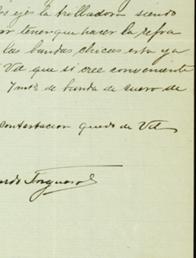 eje la trilladora siendo
or tener que hacer la refra
las bandas chicas esta ya
Vd que si cree conveniente
7 mts de banda de suero de
contestacion quedo de Vd